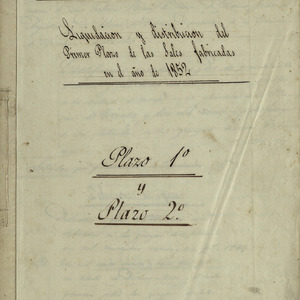 Liquidacion y distribucion del
Primer Plazo de las Sales fabricadas
en el año de 1852
Plazo 1º
y
Plazo 2º